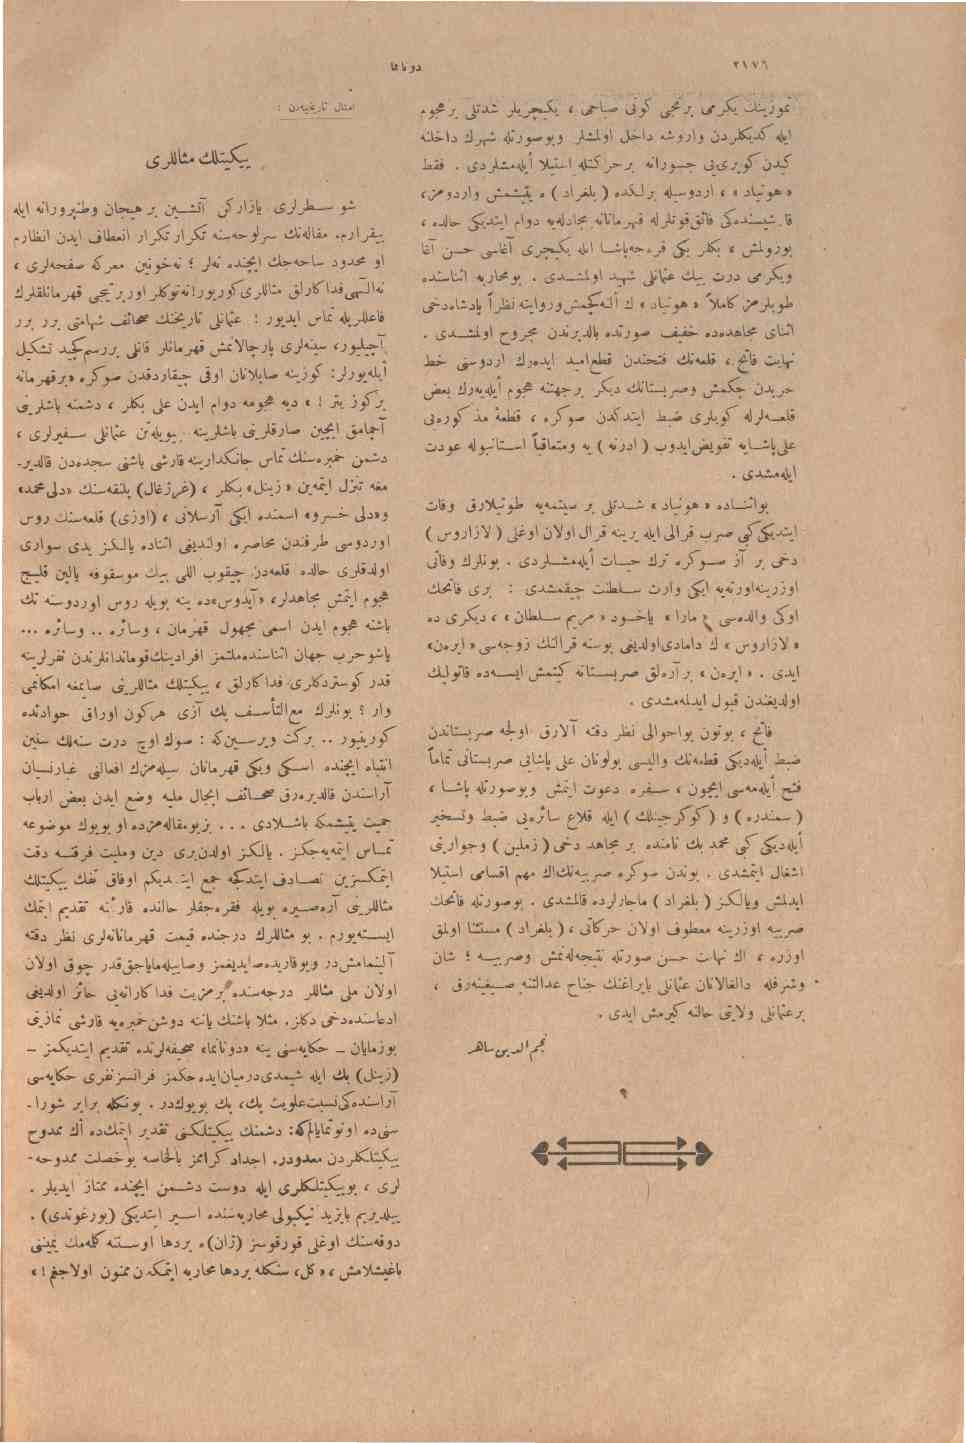 ٢١٧٦
دونانما
تموزینك یكرمی برنجی كونی صباحی ، یكیچریلر شدتلی برهجوم
ایله كدیكلردن واروشه داخل اولمشلر وبوصورتله شهرك داخلنه
كیدن كوپری‌یی جسورانه برحركتله استیلا أیله‌مشلردی . فقط
« هونیاد » ، اردوسیله برلكده ( بلغراد ) ه یتیشمش واردومز،
قارشیسنده‌كی فائق‌قوتلرله قهرمانانه مجادله‌یه دوام ایتدیكی حالده ،
یورولمش ، بكلر بكی قره‌جه‌پاشا ایله یكیچری آغاسی حسن آغا
ویكرمی درت بیك عثمانلی شهید اولمشدی . بومحاربه اثناسنده
طوپلرمز كاملاً « هونیاد » ك أله‌كچمش وروایته نظراً پادشاه‌دخی
اثنای مجاهده‌ده خفیف صورتده بالدیرندن مجروح اولمشدی .
نهایت فاتح ، قلعه‌نك فتحندن قطع‌امید ایده‌رك اردوسنی خط
حربدن چكمش وصربستانك دیكر برجهتنه هجوم أیله‌یه‌رك بعض
قلعه‌لرله كویلری ضبط ایتدكدن صوكره ، قطعهٔ مذكوره‌یی
علی‌پاشایه تفویض‌ایدوب ( ادرنه ) یه ومتعاقباً استانبوله عودت
ایله‌مشدی .
بواثناده « هونیاد » شدتلی بر سیتمه‌یه طوتیلارق وفات
ایتدیكی‌كبی صرب قرالی ایله یرینه قرال اولان اوغلی ( لازاروس )
دخی بر آز صوكره ترك حیات أیله‌مشلردی . بونلرك وفاتی
اوزرینه‌اورته‌یه ایكی وارث سلطنت چیقمشدی : بری فاتحك
اوكی والده‌سی « مارا » یاخود « مریم سلطان » ، دیكری ده
« لازاروس » ك دامادی‌اولدیغی بوسنه قرالنك زوجه‌سی « ایره‌ن»
ایدی . « ایره‌ن » برآره‌لق صربستانه كیتمش ایسه‌ده قاتولیك
اولدیغندن قبول ایدلمه‌مشدی .
فاتح ، بوتون بواحوالی نظر دقته آلارق اولجه صربستاندن
ضبط أیله‌دیكی قطعه‌نك والیسی بولونان علی پاشایی صربستانی تماماً
فتح أیله‌مه‌سی ایچون ، سفره دعوت ایتمش وبوصورتله پاشا ،
( سمندره ) و ( كوكرجینلك ) ایله قلاع سائره‌یی ضبط وتسخیر
أیله‌دیكی كبی محمد بك نامنده بر مجاهد دخی ( زملین ) وجوارینی
اشغال ایتمشدی . بوندن سوكره صربیه‌نك‌اك مهم اقسامی استیلا
ایدلمش ویالكز ( بلغراد ) ماجارلرده قالمشدی . بوصورتله فاتحك
صربیه اوزرینه معطوف اولان حركاتی ، ( بلغراد ) مستثنا اولمق
اوزره ، اك نهایت حسن صورتله نتیجه‌لنمش وصربیه ؛ شان
وشرفله دالغالانان عثمانلی بایراغنك جناح عدالتنه صیغینه‌رق ،
برعثمانلی ولایتی حالنه كیرمش ایدی .
نجم الدین ساهر
امثال تاریخیه‌دن :
ییكیتلك مثاللری
شو سطرلری یازاركن آتشین بر هیجان وطنپرورانه ایله
بیقرارم. مقاله‌نك سرلوحه‌سنه تكرار تكرار انعطاف ایدن انظارم
او محدود ساحه‌جك ایچنده نه‌لر ؛ نه‌خونین معركه صفحه‌لری ،
نه‌الهی‌فداكارلق مثاللری‌كوریور‌انه‌توكلر اورپرتیجی قهرمانلقلرك
فاعللریله تماس ایدیور ؛ عثمانلی تاریخنك صحائف شهامتی برر برر
آچیلیور، سینه‌لری پارچالانمش قهرمانلر قانلی بررسم‌كچید تشكیل
أیله‌یورلر: كوزینه صاپلانان اوقی چیقاردقدن صوكره «برقهرمانه
بركوز یتر ! » دیه هجومه دوام ایدن علی بكلر ، دشمنه باشلرینی
آچمامق ایچین صارقلرینی باشلرینه میویله‌تن عثمانلی سفیرلری ،
دشمن خمبره‌سنك تماس جانكدارینه قارشی باشنی سجده‌دن قالدیر-
مغه تنزل ایتمه‌ین « زینل» بكلر ، (غرزغال) پلنقه‌سنك «دلی‌محمد»
و«دلی خسرو» اسمنده ایكی آرسلانی ، (اوزی) قلعه‌سنك روس
اوردوسی طرفندن محاصره اولندیغی اثناده یالكز یدی سواری
اولدقلری حالده قلعه‌دن چیقوب اللی بیك موسقوفه یالین قلیج
هجوم ایتمش مجاهدلر، «آیدوس»ده ینه بویله روس اوردوسنه تك
باشنه هجوم ایدن اسمی مجهول قهرمان ، وسائره .. وسائره ...
یاشوحرب جهان اثناسنده‌ملتمز افرادینك‌قوماندانلرندن نفرلرینه
قدر كوستردكلری فداكارلق ، ییكیتلك مثاللرینی صایمغه امكانمی
وار ؟ بونلرك مع‌التأسف پك آزی هركون اوراق حوادثده
كورینیور .. بركت ویرسین‌كه : صوك اوچ درت سنه‌لك سنین
انتباه ایچنده اسكی ویكی قهرمانان سیله‌مزك افعالنی غبارنسیان
آراسندن قالدیره‌رق صحائف ابجال ملیه وضع ایدن بعض ارباب
حمیت یتیشمكه باشلادی . بزبومقاله‌مزده او بویوك موضوعه
تماس ایتمه‌یه‌جكز . یالكز اولدن‌بری دین وملیت فرقنه دقت
ایتمكسزین تصادف ایتدكجه جمع ایتدیكم اوفاق تفك ییكیتلك
مثاللرینی آره‌صیره بویله فقره‌جقلر حالنده قارئنه تقدیم ایتمك
ایسته‌یورم . بو مثاللرك درجنده قیمت قهرمانانه‌لری نظر دقته
آلینمامش‌در وبوقاریده‌صایدیغمز وصاییله‌مایاجق‌قدر چوق اولان
اولان ملی مثاللر درجه‌سنده برمزیت فداكارانه‌یی حائز اولدیغی
ادعاسنده‌دخی دكلز. مثلا باشنك یاننه دوشن‌خمبره‌یه قارشی نمازینی
بوزمایان - حكایه‌سنی ینه «دونانما» صحیفه‌لرنده تقدیم ایتدیكمز -
(زینل) بك ایله شیمدی‌درمیان‌ایده جكمز فرانسزنفری حكایه‌سی
آراسنده‌كی‌نسبت‌علویت پك، پك بویوك‌در. بونكله برابر شورا-
سنی‌ده اونوتمایالم‌كه: دشمنك ییكیتلكنی تقدیر ایتمك‌ده أك ممدوح
ییكیتلكلردن معدودر. اجداد كرامز بالخاسه بوخصلت ممدوحه-
لری ، بوییكیتلكلری ایله دوست دشمن ایچنده ممتاز ایدیلر .
ییلدیریم بایزید نیكبولی محاربه‌سنده اسیر ایتدیكی (بورغوندی) .
دوقه‌سنك اوغلی قورقوسز (ژان)ه بردها اوستنه كلمه‌مك یمیننی
باغیشلامش ، « كل، سنكله بردها محاربه ایتمكدن ممنون اولاجغم ! »